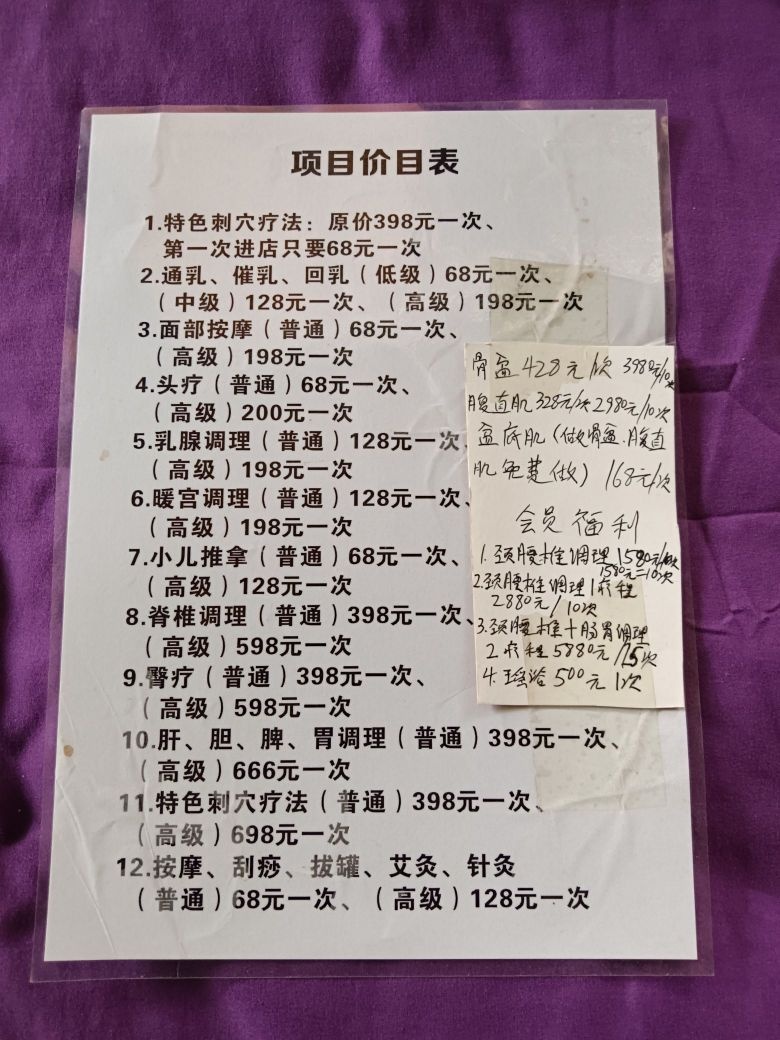 项目价目表
1.特色刺穴疗法：原价398元一次、
第一次进店只要68元一次
2.通乳、催乳、回乳（低级）68元一次、
（中级）128元一次、（高级）198元一次
3.面部按摩（普通）68元一次、
（高级）198元一次
4.头疗（普通）68元一次、
（高级）200元一次
5.乳腺调理（普通）128元一次、
（高级）198元一次
6.暖宫调理（普通）128元一次、
（高级）198元一次
7.小儿推拿（普通）68元一次、
（高级）128元一次
8.脊椎调理（普通）398元一次、
（高级）598元一次
9.臀疗（普通）398元一次、
（高级）598元一次
10.肝、胆、脾、胃调理（普通）398元一次、
（高级）666元一次
11.特色刺穴疗法（普通）398元一次、
（高级）698元一次
12.按摩、刮痧、拔罐、艾灸、针灸
（普通）68元一次、（高级）128元一次
骨盆428元/次 3980元/10次
腹直肌328元/次 2980元/10次
盆底肌（做骨盆.腹直
肌免费做）168元/次
会员福利
1.颈腰椎调理1580元/10次
1580元=10次
2.颈腰椎调理1疗程
2880元/10次
3.颈腰椎+肠胃调理
2疗程5880元/25次
4.瑶浴500元1次